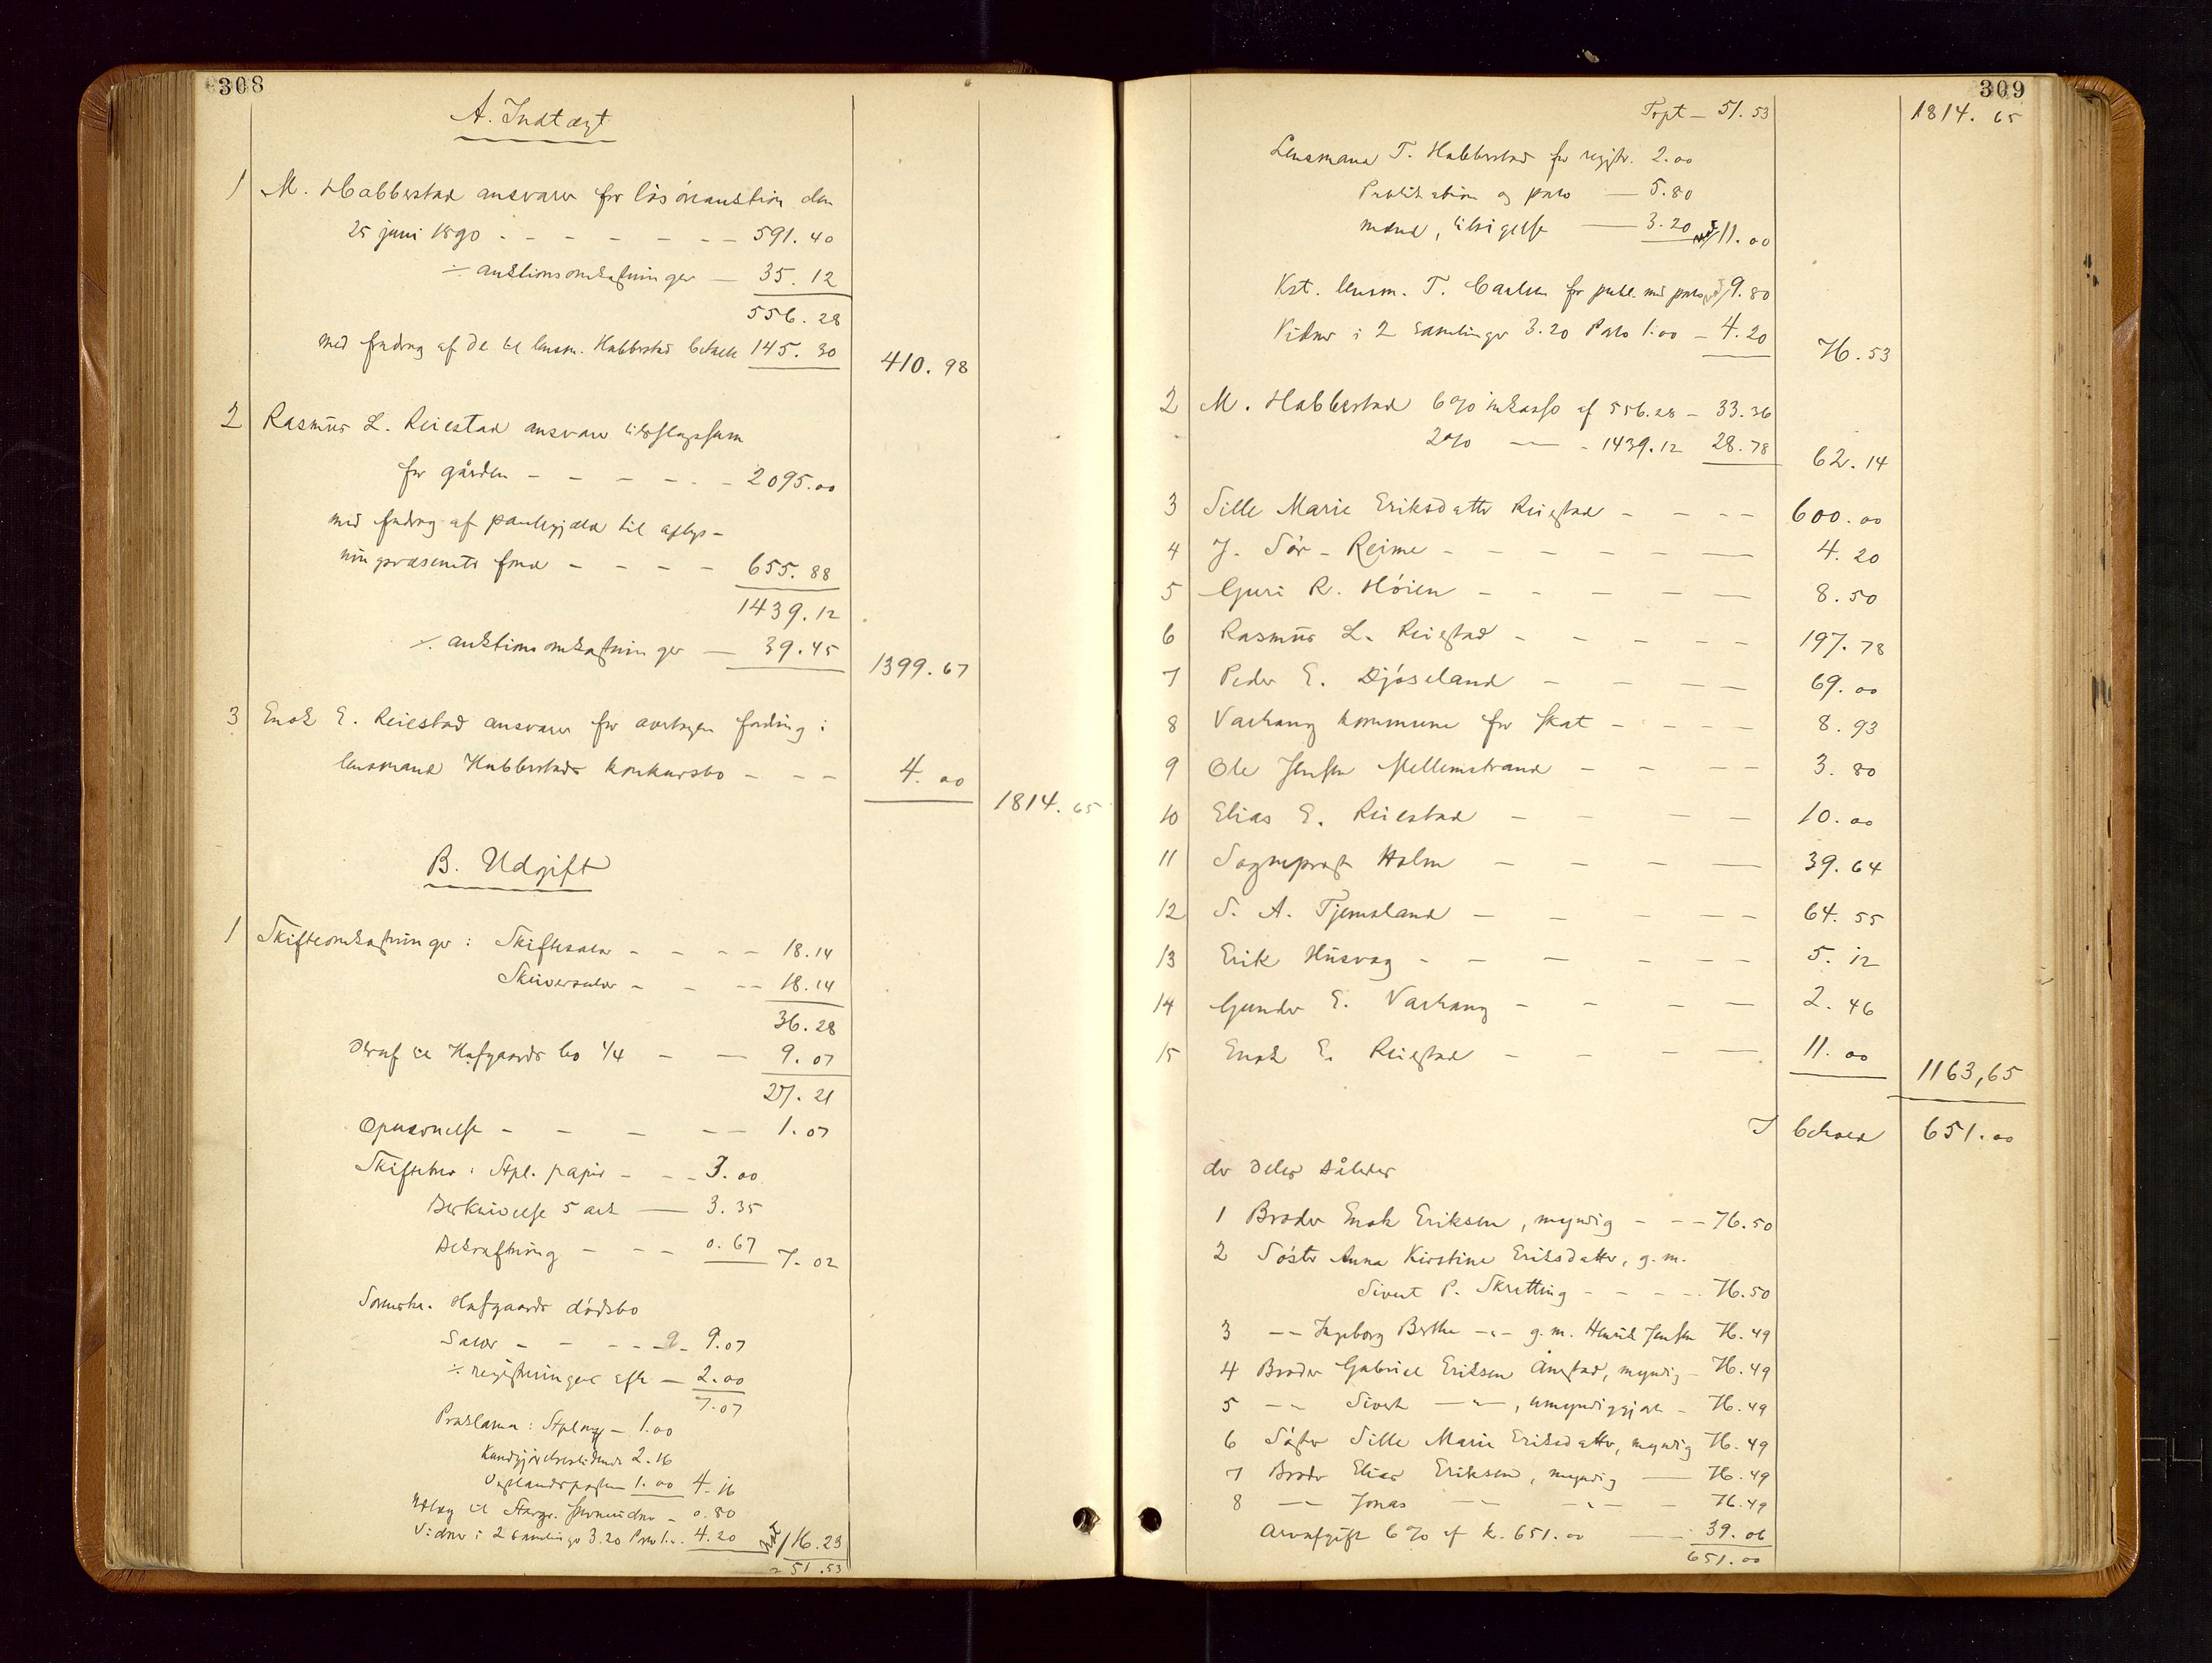 308
A. Indtægt
1 M. Habberstad ansvarer for løsøreauktion den
25 juni 1890 - - - - - - - 591.40
÷ auktionsomkostninger — 35.12
556.28
med fradrag af de til lensm. Habberstad betalte 145.30 410.98
2 Rasmus L. Reiestad ansvarer tilslagssum
for gården - - - - - - 2095.00
med fradrag af pantegjæld til oplys-
ningsvæsenets fond - - - - 655.88
1439.12
÷ auktionsomkostninger — 39.45 1399.67
3 Enok E. Reiestad ansvarer for overtagen fordring i
lensmand Habberstads konkursbo - - - 4.00
1814.65
B. Udgift
1 Skifteomkostninger: Skiftesalær - - - - 18.14
Skriversalær - - - - 18.14
36.28
Deraf til Hafgaards bo 1/4 - — 9.07
27.21
Opnævnelse - - - - - 1.07
Skiftebrev: Stpl. papir - - - 3.00
Beskrivelse 5 ark — 3.35
Bekræftning - - - 0.67 7.02
Sorenskr. Hafgaards dødsbo
Salær - - - - - 9.07
÷ registeringen efter — 2.00
7.07
Proklama: Stpl — 1.00
Kundgjørelsestidende 2.16
Vestlandsposten 1.00 4.16
Udlæg til - 0.80
Vidner i 2 samlinger 3.20 Prot 1.00 4.20 16.23
51.53
309
Trpt — 51.53 1814.65
Lensmand T. Habberstad for registr. 2.00
Publikation og porto — 5.80
mænd, tilsigelse — 3.20 11.00
Kst. lensm. T. Carlsen for publ. med porto 9.80
Vidner i 2 samlinger 3.20 Porto 1.00 - 4.20 76.53
2 M. Habberstad 6% inkasso af 556.28 - 33.36
2% — - 1439.12 28.78 62.14
3 Sille Marie Eriksdatter Reiestad - - - - 600.00
4 J. Sør-Reime - - - - - — 4.20
5 Guri R. Høien - - - - — 8.50
6 Rasmus L. Reiestad - - - - — 197.78
7 Peder E. Djøseland - - - — 69.00
8 Varhaug kommune for skat - - - — 8.93
9 Ole Jensen Mellemstrand - - - - 3.80
10 Elias E. Reiestad - - - - 10.00
11 Sogneprest Holm - - - — 39.64
12 S. A. Tjemsland - - - - 64.55
13 Erik Husvæg - - - - - 5.12
14 Gunder E. Varhaug - - - — 2.46
15 Enok E. Reiestad - - - — 11.00
1163,65
I behold 651.00
der deles således
1 Broder Enok Eriksen, myndig - - - 76.50
2 Søster Anna Kirstine Eriksdatter, g.m.
Sivert P. Skretting - - - - 76.50
3 -- Ingeborg Berthe -"- g.m. Henrik Jensen 76.49
4 Broder Gabriel Eriksen Ånestad, myndig - 76.49
5 -- Sivert -"-, umyndiggjort - 76.49
6 Søster Sille Marie Eriksdatter, myndig 76.49
7 Broder Elias Eriksen, myndig — 76.49
8 -- Jonas -- -"- - 76.49
Arveafgift 6% af k. 651.00 — 39.06
651.00